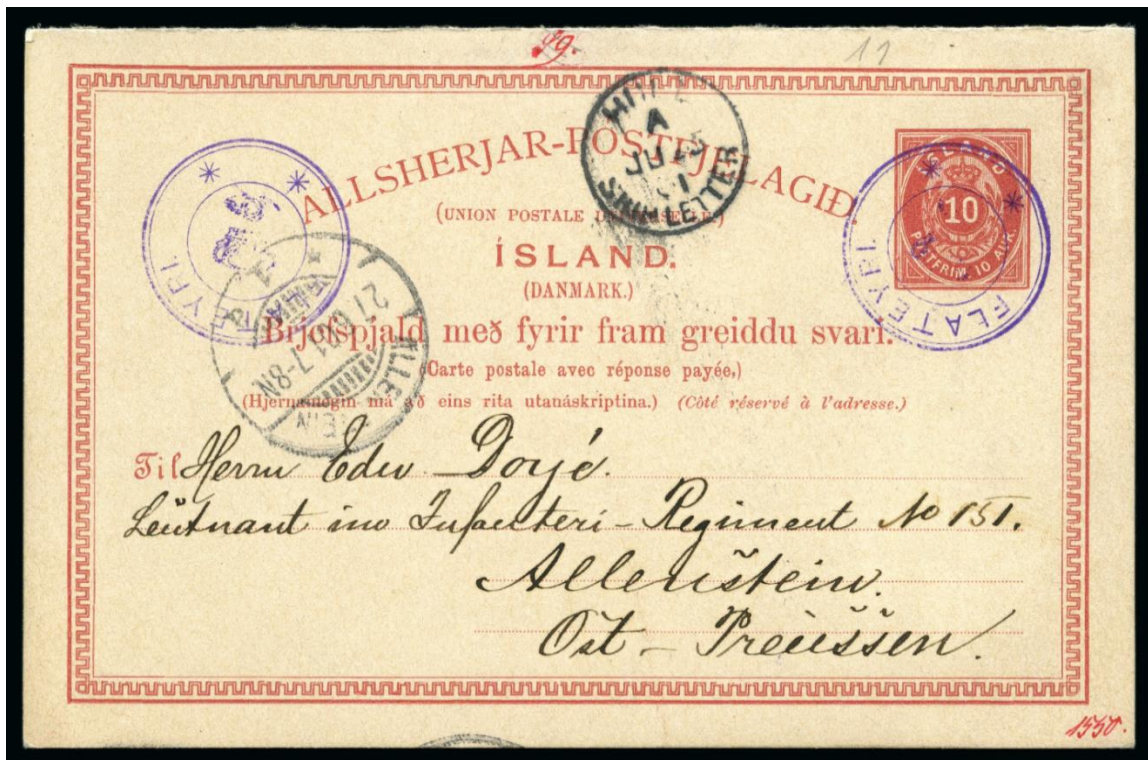 99.
11
ALLSHERJAR-POSTFJELAGIÐ.
(UNION POSTALE UNIVERSELLE.)
ÍSLAND.
(DANMARK.)
Brjefspjald með fyrir fram greiddu svari.
(Carte postale avec réponse payée.)
(Hjernamegin má að eins rita utanáskriptina.) (Côté réservé à l'adresse.)
ÍSLAND
10
PÓSTFRIM. 10 AUR.
FLATEYRI
HULL
A
JU 23
SHIP LETTER
ALLENSTEIN
27 6 7-8N.
Til Herrn Edw
Leutnant im Infanteri-Regiment No 151.
Allenstein.
Ost-Preussen.
1550.